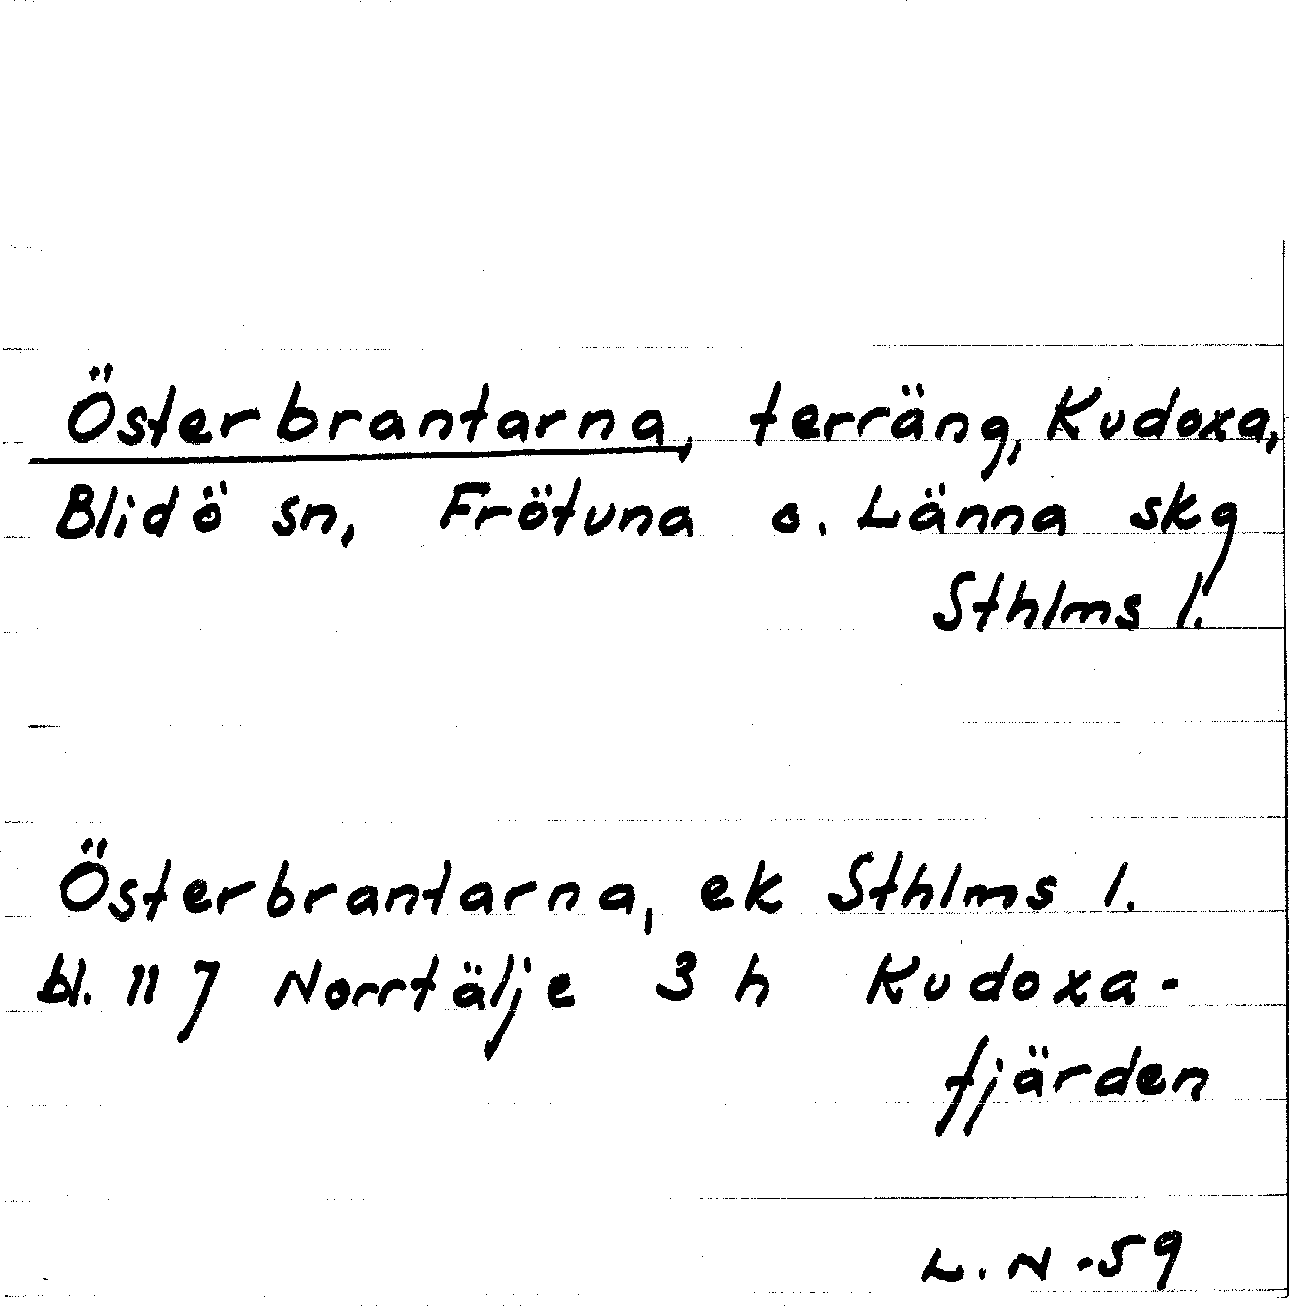 Österbrantarna, terräng, Kudoxa,
Blidö sn, Frötuna o. Länna skg
Sthlms l.
Österbrantarna, ek Sthlms l.
bl. 117 Norrtälje 3 h Kudoxa-
fjärden
L. N -59